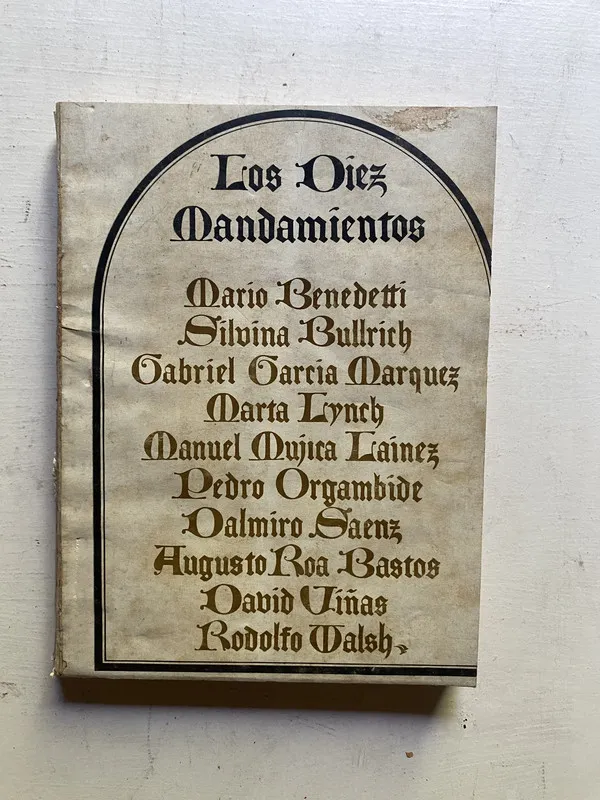 Los Diez
Mandamientos
Mario Benedetti
Silvina Bullrich
Gabriel Garcia Marquez
Marta Lynch
Manuel Mujica Lainez
Pedro Orgambide
Dalmiro Saenz
Augusto Roa Bastos
David Viñas
Rodolfo Walsh